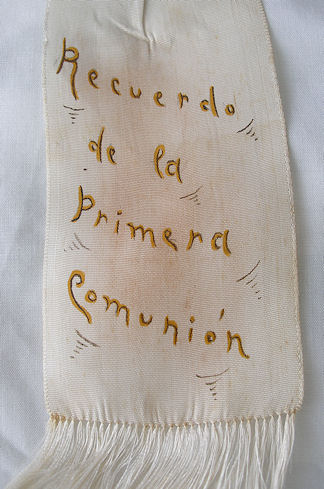 Recuerdo
de la
primera
Comunión